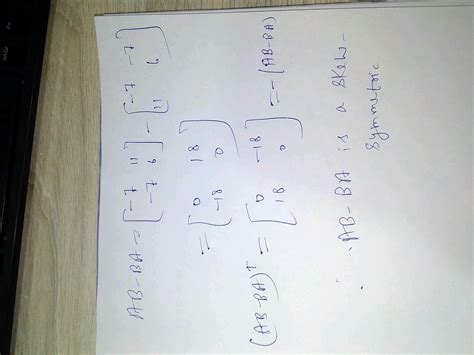 AB-BA = [-7 11; -7 6] - [-7 -7; 11 6]
= [0 18; -18 0]
(AB-BA)ᵀ = [0 -18; 18 0] = -(AB-BA)
∴ AB-BA is a skew-
symmetric